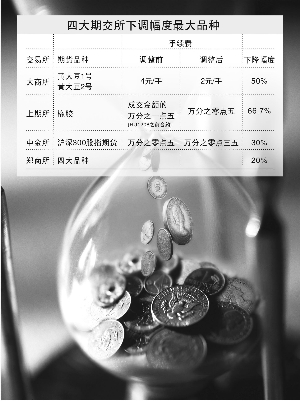 四大期交所下调幅度最大品种
手续费
交易所 期货品种 调整前 调整后 下降幅度
大商所 黄大豆1号 4元/手 2元/手 50%
黄大豆2号
上期所 橡胶 成交金额的 万分之零点五 66.7%
万分之一点五
中金所 沪深300股指期货 万分之零点五 万分之零点三五 30%
郑商所 四大品种 20%